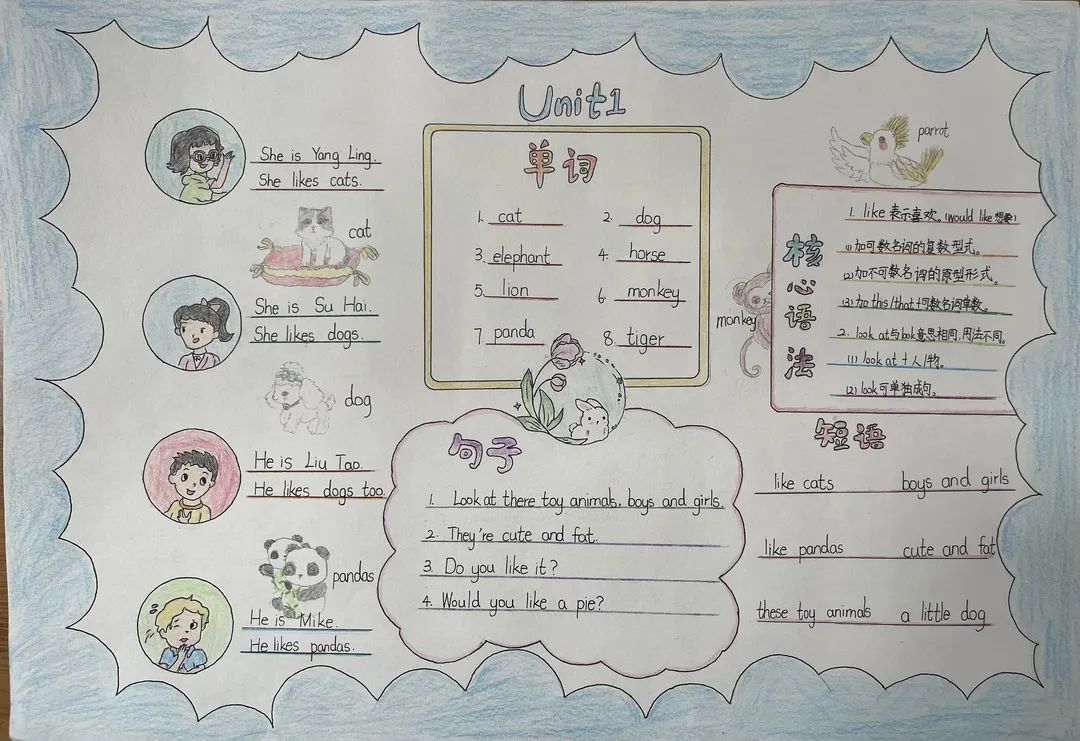 Unit1
She is Yang Ling.
She likes cats.
cat
She is Su Hai.
She likes dogs.
dog
He is Liu Tao.
He likes dogs too.
pandas
He is Mike.
He likes pandas.
单词
1. cat
2. dog
3. elephant
4. horse
5. lion
6. monkey
7. panda
8. tiger
句子
1. Look at there toy animals, boys and girls.
2. They're cute and fat.
3. Do you like it?
4. Would you like a pie?
parrot
monkey
核心语法
1. like 表示喜欢。(would like 想要)
(1) 加可数名词的复数型式。
(2) 加不可数名词的原型形式。
(3) 加 this/that+可数名词单数。
2. look at 与 look 意思相同,用法不同。
(1) look at + 人/物。
(2) look 可单独成句。
短语
like cats boys and girls
like pandas cute and fat
these toy animals a little dog